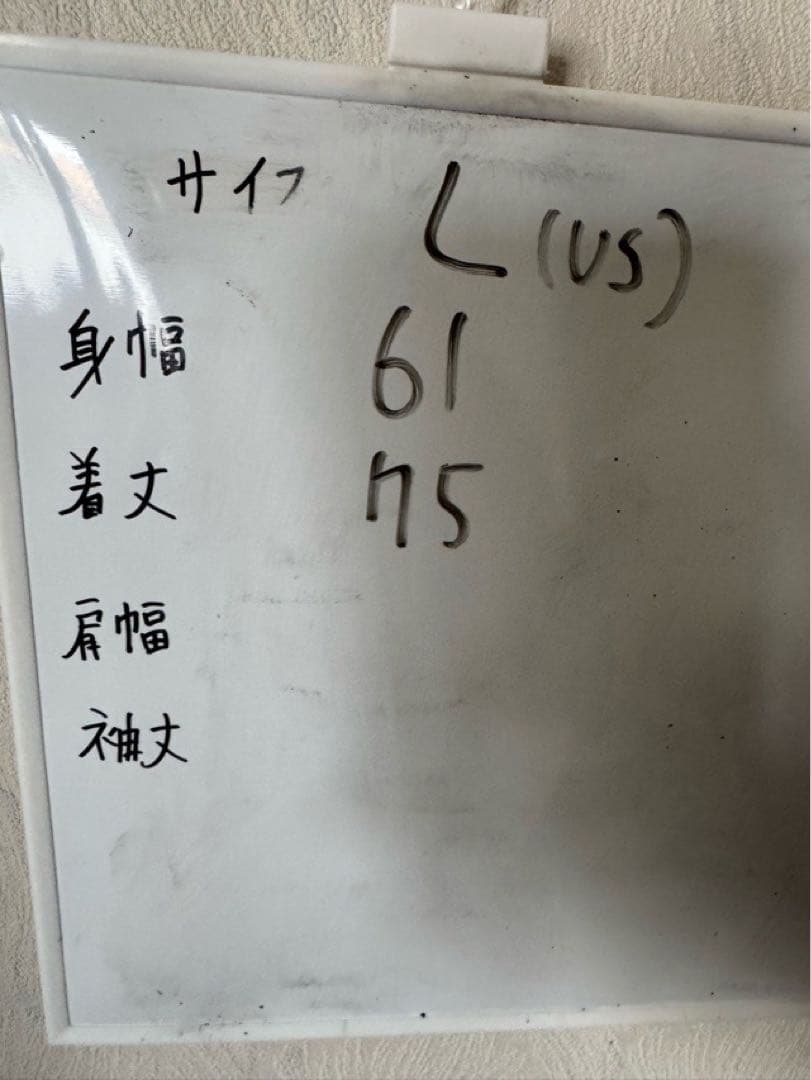 サイフ L (US)
身幅 61
着丈 75
肩幅
袖丈